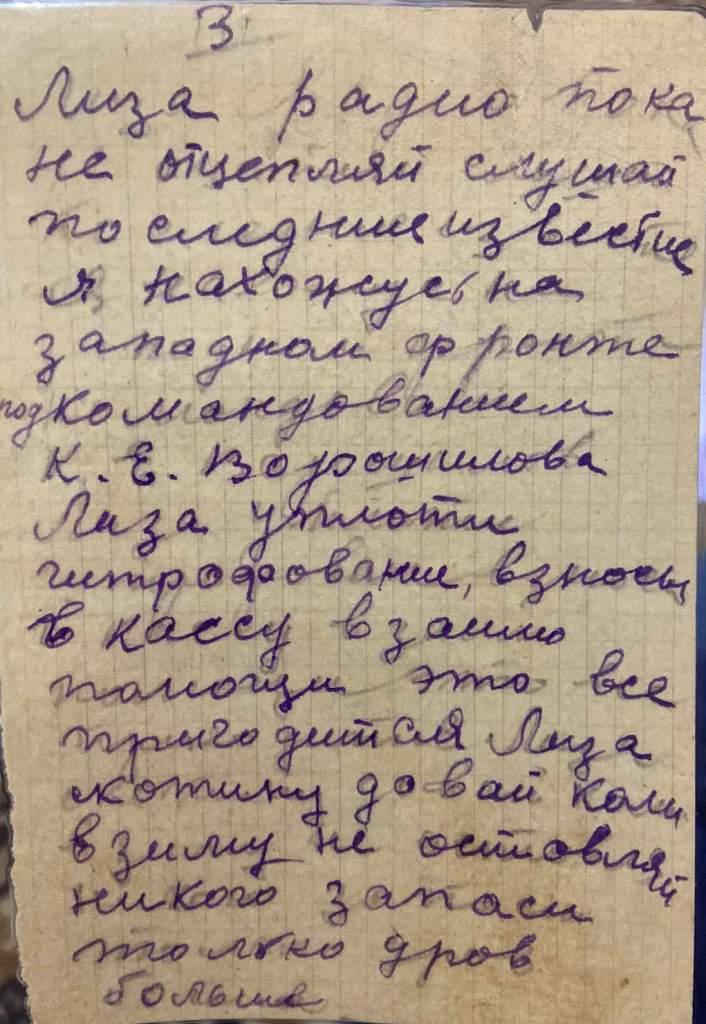 3
Лиза радио пока
не отцепляй слушай
последние известие
я нахожусь на
западном фронте
под командованием
К. Е. Ворошилова
Лиза уплоти
взносы
в кассу взаимо
помощи это все
пригодится Лиза
скотину давай коли
в зиму не оставляй
никого запаси
только дров
больше